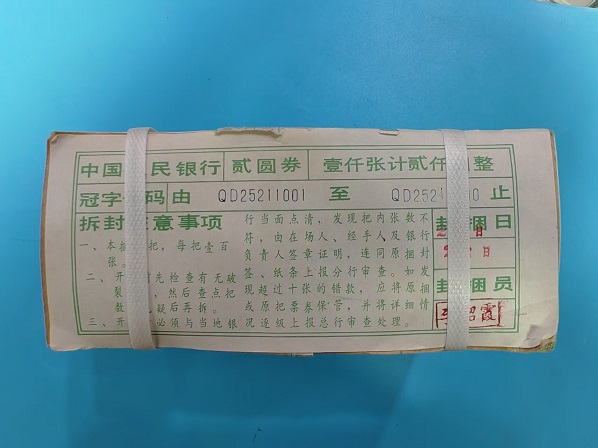 中国 民银行 贰圆券 壹仟张计贰仟 整
冠字 码 由 QD25211001 至 QD252 0 止
拆封 意事项
一、本 把，每把壹百
张。
二、开 先检查有无破
裂 ，然后查点把
数 疑后再拆。
三、开 必须与当地银
行当面点清，发现把内张数不
符，由在场人、经手人及银行
负责人签章证明，连同原捆封
签、纸条上报分行审查。如发
现超过十张的错款，应将原捆
或原把票券保管，并将详细情
况逐级上报总行审查处理。
封 捆 日
日
封 捆 员
霞